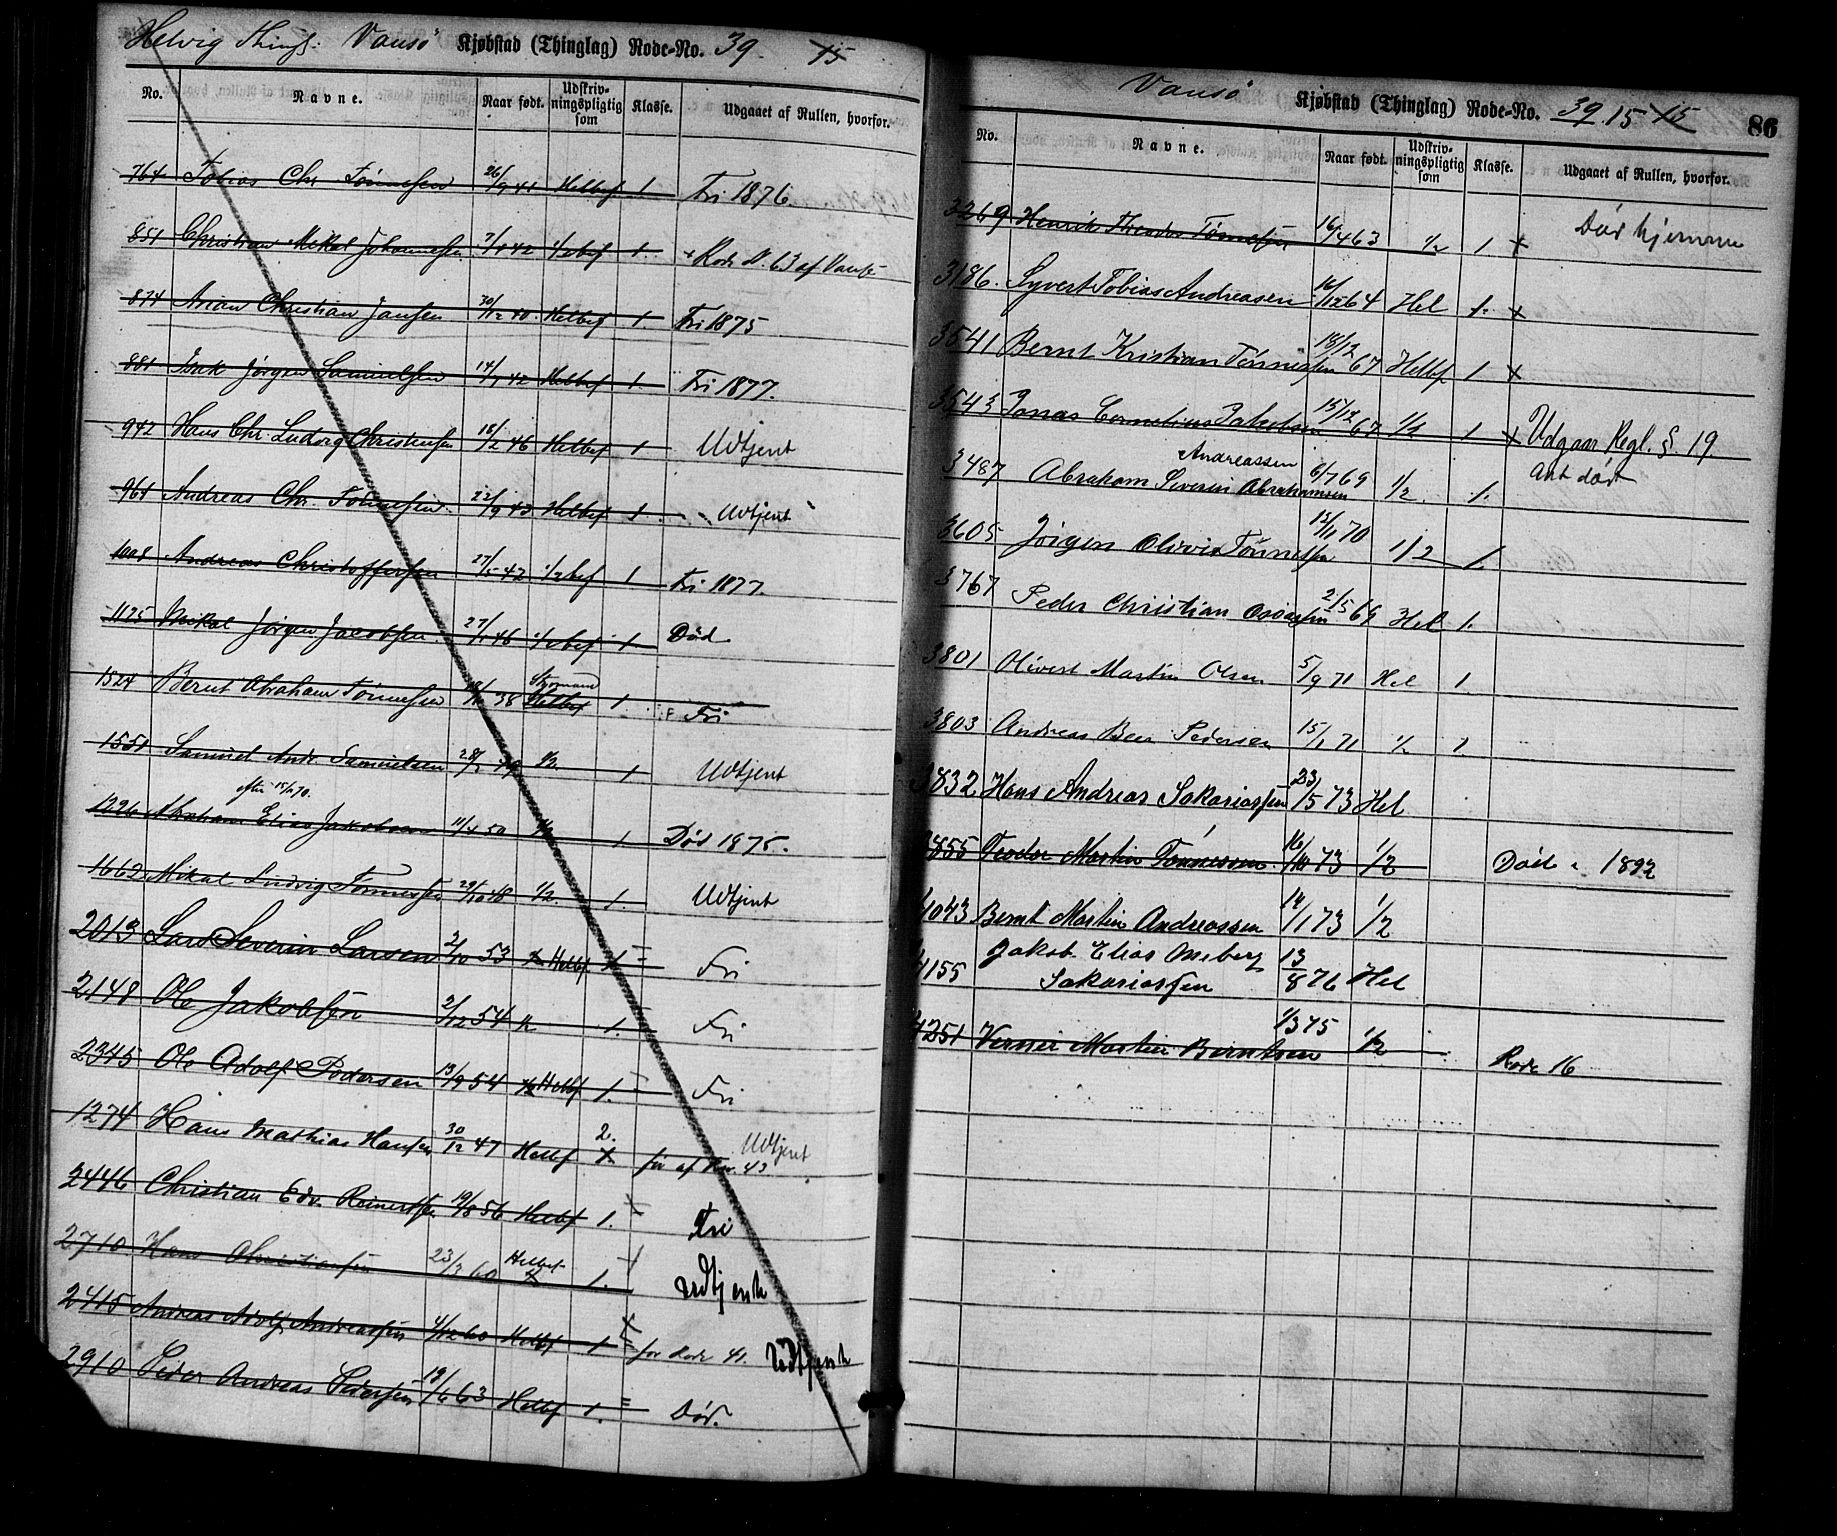 Helvig Vansø Kjøbstad (Thinglag) Rode-No. 39. 15
No. Navne. Naar født. Udskrivningspligtig som Klasse. Udgaaet af Rullen, hvorfor.
764 Tobias Chr Tønnesen 26/9 41 Helbef 1. Fri 1876.
851 Christian Mikal Johannesen 42 1/2bef 1. Rode N. 63 af Vansø
874 Christian Jansen 30/12 40. Helbef 1. Fri 1875
881 Jørgen Samuelsen 14/ 42 Helbef 1. Fri 1877.
942 Hans Chr. Ludvig Christensen 18/2 46 Helbef 1 Udtjent
964 Andreas Chr. Tønnesen 22/9 43 Helbef 1. Udtjent
1008 Andreas Christoffersen 27/5 42 1/2bef 1 Fri 1877.
1125 Mikal Jørgen Jacobsen 27/ 46 1/2bef 1 Død
1524 Bernt Abraham Tønnesen 38 Styrmand Helbef 1. Fri
1551 Samuel Andr. Samuelsen 28/ 1/2 1 Udtjent
1226 Abraham Elias Jakobsen 11/4 50 1 Død 1875.
1662 Mikal Ludvig Tønnessen 29/10 48 1/2. 1. Udtjent
2013 Lars Severin Larsen 2/10 53 Helbf Fri
2148 Ole Jakobsen 2/12 54 1. Fri
2345 Ole Adolf Pedersen 13/9 54 Helbf 1. Fri
1274 Hans Mathias Hansen 30/12 47 Helbf 2. Udtjent
før af 43
2446 Christian Edv. Reinertsen 19/8 56 Helbf 1. Fri
2710. Hans Christiansen 23/ 60 Helbef 1. udtjent
2415 Andreas Adolf Andreassen 4/12 60 Helbf 1 før Rode 41. Udtjent
2910 Peder Andreas Pedersen 19/6 63 Helbf 1. Død.
Vansø Kjøbstad (Thinglag) Rode-No. 39 15 15 86
No. Navne. Naar født. Udskrivningspligtig som Klasse. Udgaaet af Rullen, hvorfor.
3269 Henrik Theodor Tønnesen 16/4 63 1/2 1. x Død hjemme
3186. Syvert Tobias Andreasen 16/12 64 Hel 1. x
3541 Bernt Kristian Tønnessen 18/12 67 Helbf 1 x
3543 Jonas Cornelius Jakobsen 15/12 67 1/2 1 x Udgaar Regl. § 19.
Andreassen
3487 Abraham Severin Abrahamsen 6/7 69 1/2. 1. Ant død
3605 Jørgen Olivis Tønnessen 12/11 70 1/2 1.
3767 Peder Christian 2/5 69 Hel 1.
3801 Olivert Martin Olsen 5/9 71 Hel 1
3803 Andreas Ber Pedersen 15/1 71 1/2 1
3832 Hans Andreas Sakariassen 23/5 73 Hel
3855 Teodor Martin Tønnessen. 16/10 73 1/2 Død 1892
4043 Bernt Martin Andreassen 14/1 73 1/2
Jakob Elias Meberg
4155 Sakariassen 13/8 76 Hel
4251 Verner Martin Berntsen 1/3 75 1/2 Rode 16